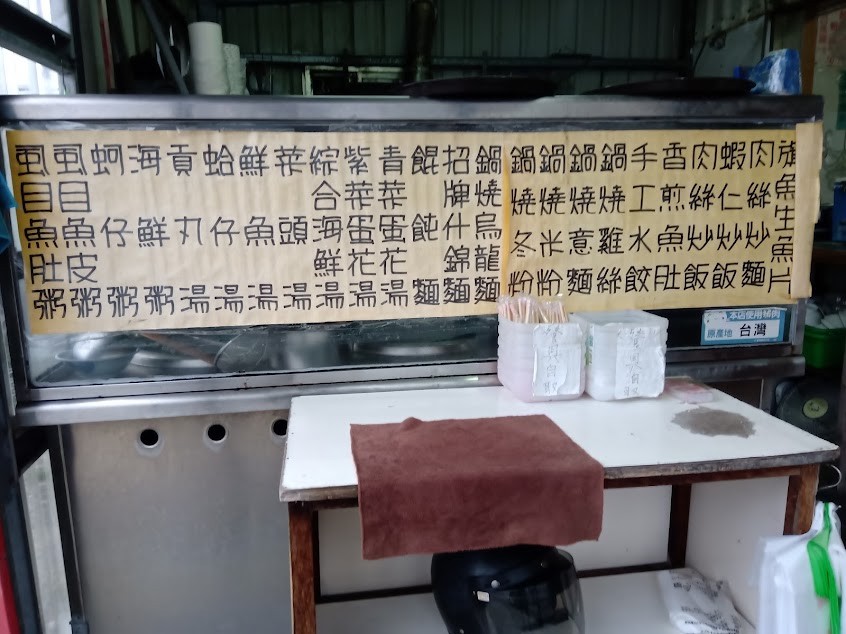 旗魚生魚片
肉絲炒麵
蝦仁炒飯
肉絲炒飯
香煎魚肚
手工水餃
鍋燒雞絲
鍋燒意麵
鍋燒米粉
鍋燒冬粉
鍋燒烏龍麵
招牌什錦麵
餛飩麵
青菜蛋花湯
紫菜蛋花湯
綜合海鮮湯
菜頭湯
鮮魚湯
蛤仔湯
貢丸湯
海鮮粥
蚵仔粥
虱目魚皮粥
虱目魚肚粥
本店使用豬肉
原產地 台灣